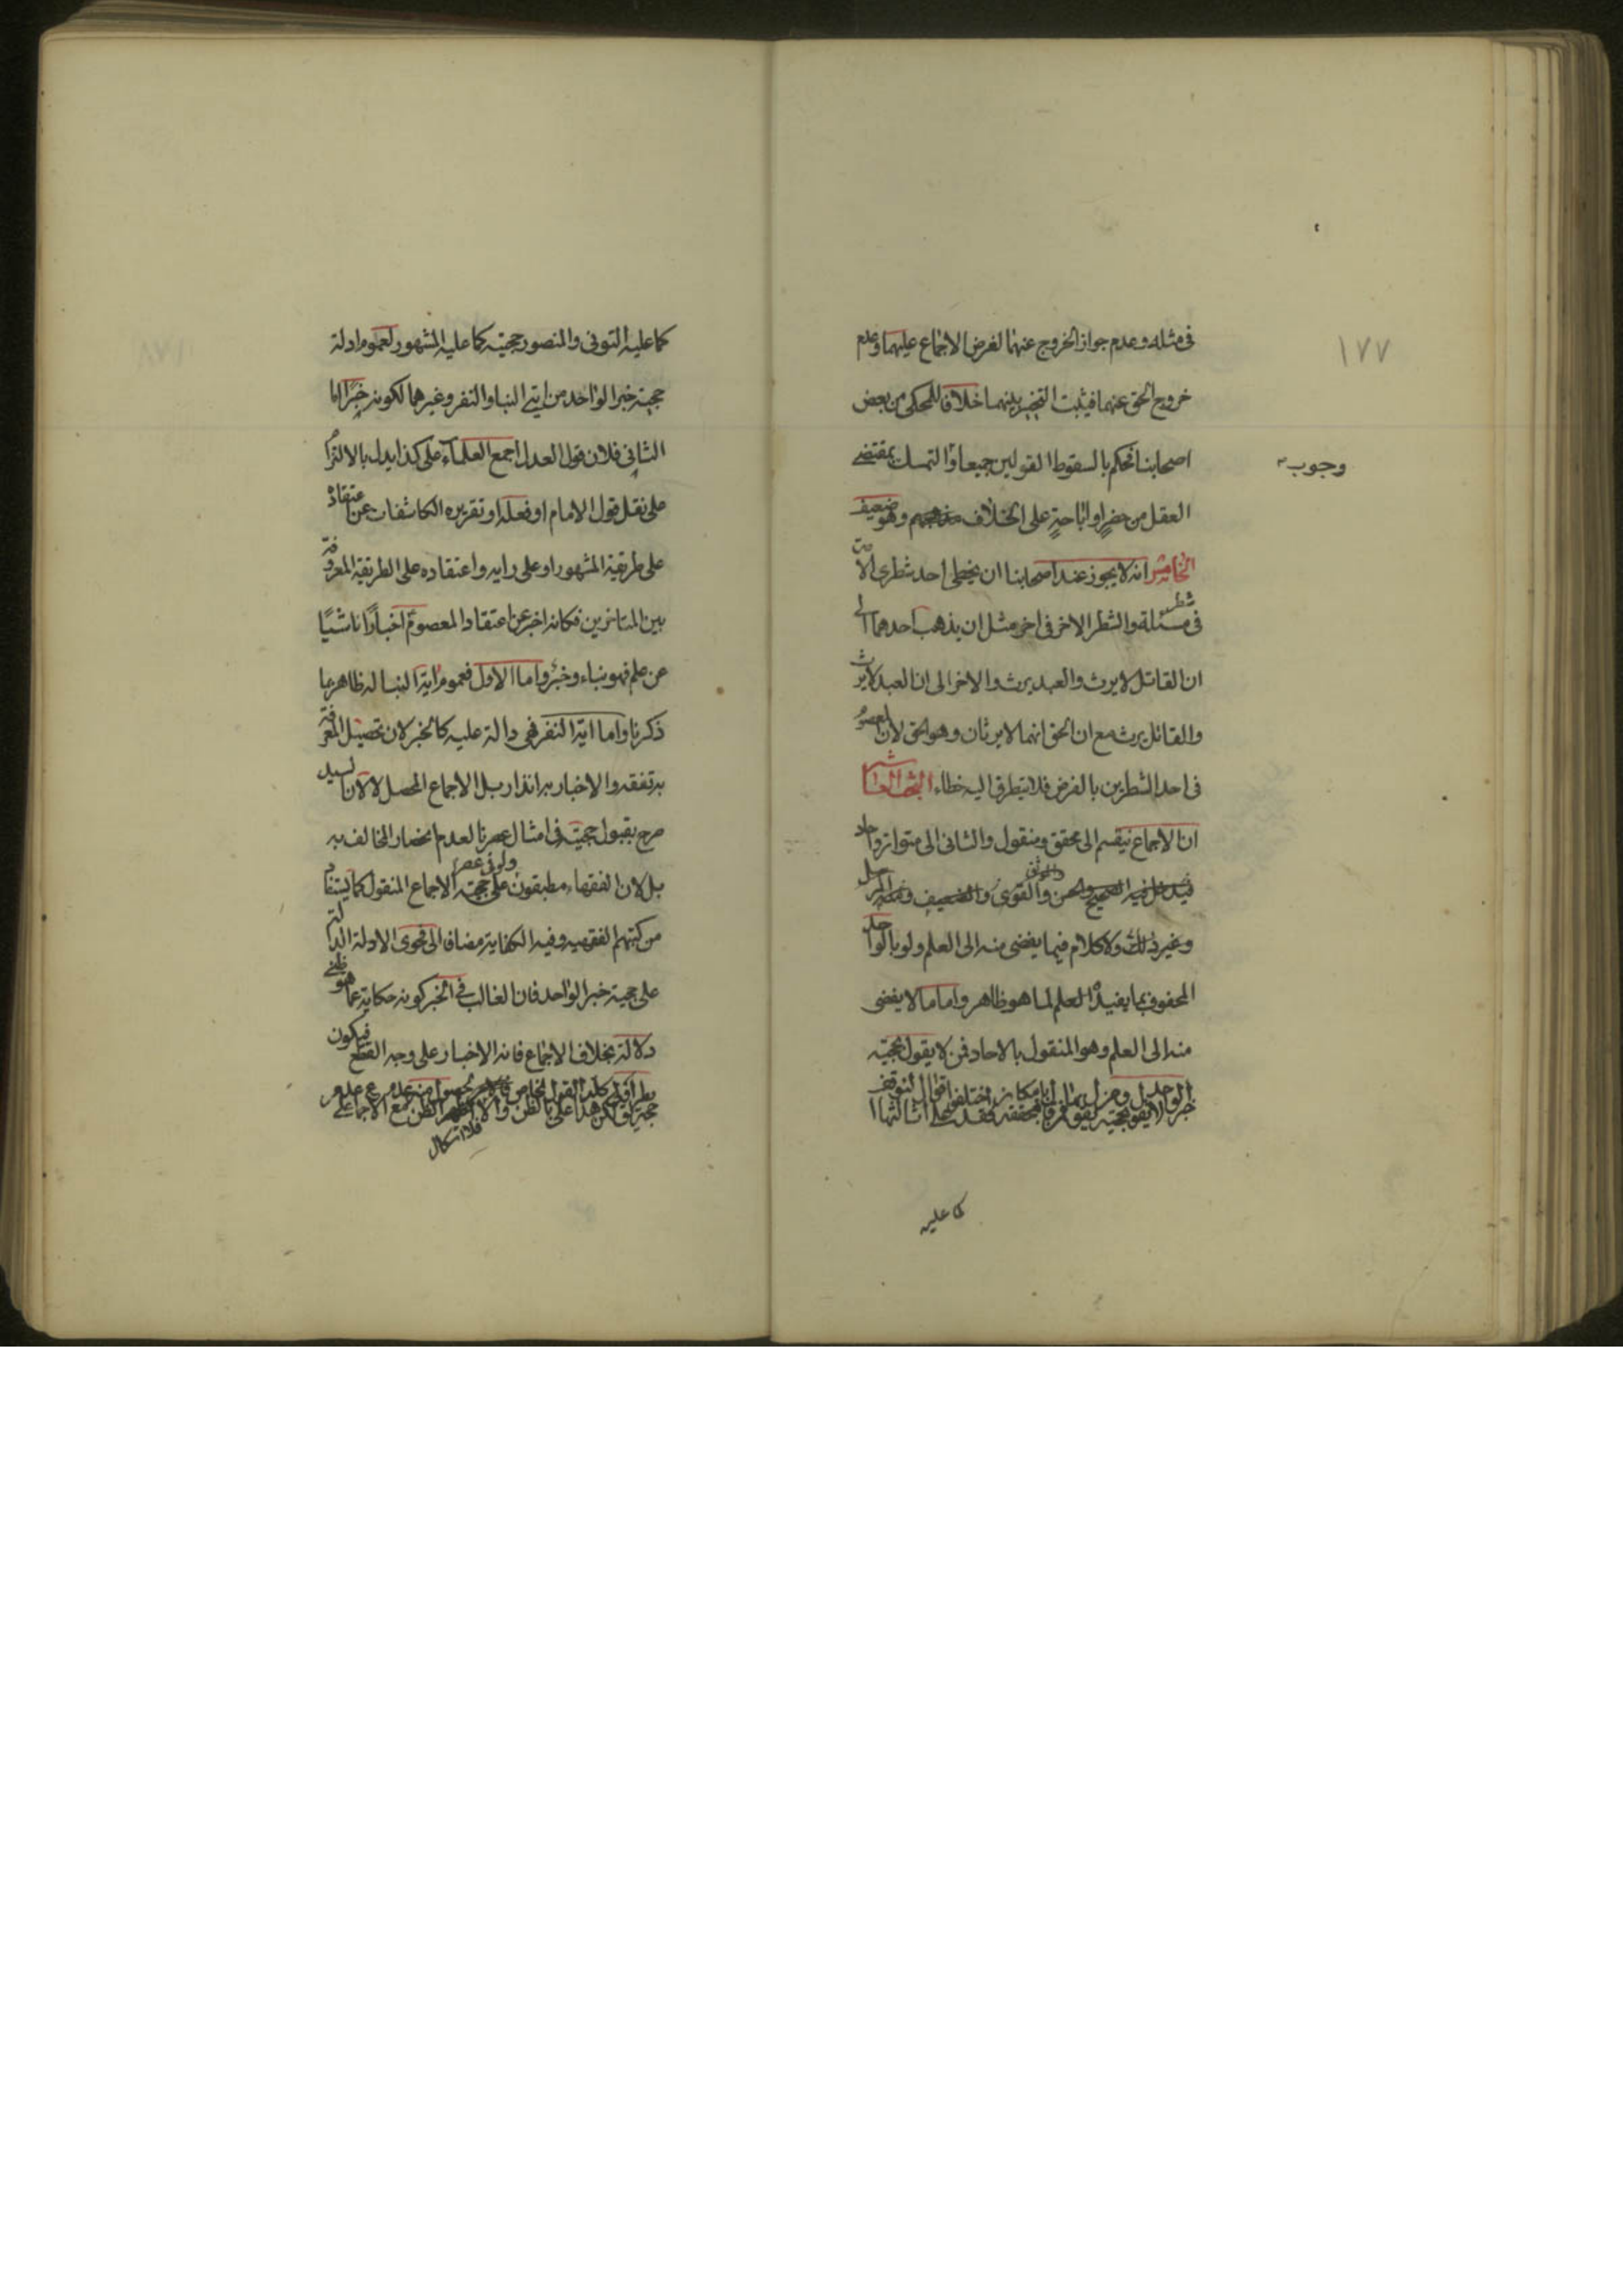 ١٧٧
فى مثله وعدم جواز الخروج عنهما لفرض الاجماع عليهما وعدم
خروج الحق عنهما فيثبت التخيير بينهما خلافا للمحكى من بعض
اصحابنا فحكم بالسقوط القولين جميعا والتمسك بمقتضى
وجوب
العقل من حضر او اباحة على الخلاف وهو ضعيف
الخامس انه لا يجوز عند اصحابنا ان يخطى احد شطرى الامة
فى مسئلة والشطر الاخر فى اخر مثل ان يذهب احدهما الى
شطر
ان القاتل لا يرث والعبد يرث والاخر الى ان العبد لا يرث
والقاتل يرث مع ان الحق انهما لا يرثان وهو الحق لان المعصوم
فى احد الشطرين بالفرض فلا يتطرق اليه خطاء البحث العاشر
ان الاجماع ينقسم الى محقق ومنقول والثانى الى متواتر واحاد
فيدخل فيه الصحيح والحسن والموثق والقوى والضعيف
وغير ذلك ولا كلام فيما يفضى منه الى العلم ولو بالواحد
المحفوف بما يفيد العلم لما هو ظاهر واما ما لا يفضى
منه الى العلم وهو المنقول بالاحاد فمن لا يقول بحجية
خبر الواحد
كما عليه
كما عليه التونى والمنصور حجيته كما عليه المشهور لعموم ادلة
حجية خبر الواحد من ايتى النبا والنفر وغيرهما لكونه خبرا اما
الثانى فلان قول العدل اجمع العلماء على كذا يدل بالالتزام
على نقل قول الامام او فعله او تقريره الكاشفات عن اعتقاده
على طريقة المشهور او على رايه واعتقاده على الطريقة المعروفة
بين المتاخرين فكانه اخبر عن اعتقاد المعصوم اخبارا ناشيا
عن علم فهو نباء وخبر واما الاول فعموم اية النبا له ظاهر مما
ذكرنا واما اية النفر فهى دالة عليه كالخبر لان تحصيل المعرفة
به تفقه والاخبار به انذار بل الاجماع المحصل لا لان السيد
صرح بقبول حجيته فى امثال عصرنا لعدم انحصار المخالف به
بل لان الفقهاء مطبقون على حجية الاجماع المنقول كما يستفاد
ولو فى عصر
من كتبهم الفقهيه وفيه الكفاية مضافا الى فحوى الادلة الدالة
على حجية خبر الواحد فان الغالب فى الخبر كونه حكاية عما هو ظنى
دلالة بخلاف الاجماع فانه الاخبار على وجه القطع فيكون
فلا اشكال